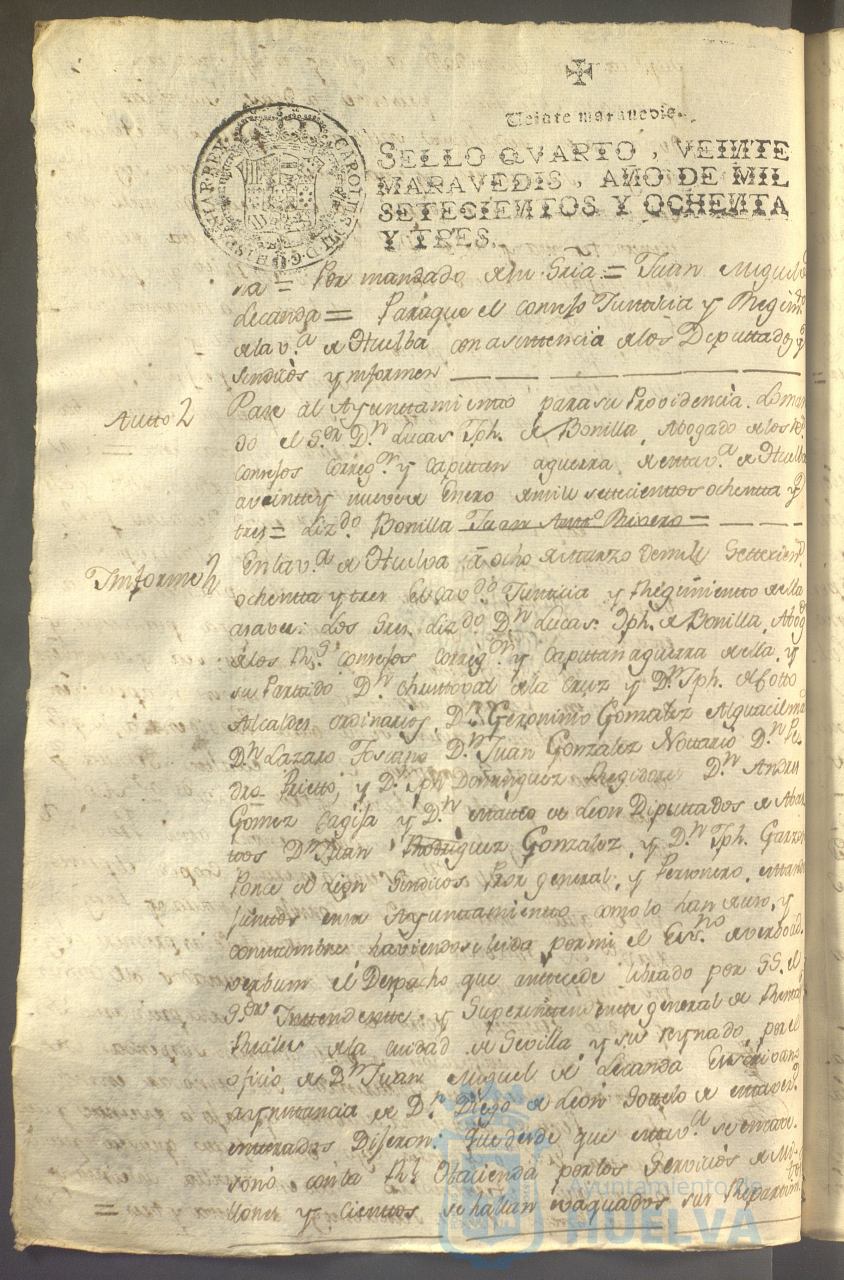 Veinte maravedis.
SELLO QVARTO, VEINTE
MARAVEDIS, AÑO DE MIL
SETECIENTOS Y OCHENTA
Y TRES.
CAROLUS III D. G. HISPANIAR. REX
ria = Por mandado de su Sria = Juan Miguel
Lecanda = Para que el consejo Justicia y Regimto
de la v.a de Huelba con asistencia de los Diputtados y
sindicos ynformen
Autto 2
Pase al Ayuntamientto para su Providencia. Lo man
do el S.or D.n Lucas Jph. de Bonilla, Abogado de los
consejos correg.or y capittan aguerra, de esta v.a de Huelba
a veintte y nueve de Enero de mill settecienttos ochentta y
tres = Liz.do Bonilla Juan Antt.o Rivero =
Ynforme 2
En la v.a de Huelva a ocho de Marzo de mill Settecien.s
ochentta y tres El cav.do Justicia y Regimientto de ella
asaver: Los Sres. Liz.do D.n Lucas Jph. de Bonilla, Abog.do
de los R.s consejos correg.or y capittan aguerra de ella, y
su Partido D.n Christoval de la Cruz y D.n Jph. de Sotto
Alcaldes ordinarios D.n Geronimo Gonzalez Alguacil m.or
D.n Lazaro D.n Juan Gonzalez Nottario D.n Pe
dro Prietto, y D.n Jph Dominguez Regidores D.n Andres
Gomez y D.n Matteo de Leon Diputtados de Abas
ttos D.n Juan Rodriguez Gonzalez, y D.n Jph. Garzia
Ponce de Leon Sindicos Pror general, y Personero, esttando
juntos en su Ayuntamientto como lo han de uso, y
costtumbre haviendose leido por mi el Ess.no de verbo ad
verbum el Despacho que antecede librado por SS. el
S.or Inttendentte y Superinttendentte general de Renttas
Reales de la ciudad de Sevilla y su Reynado, por el
oficio de D.n Juan Miguel de Lecanda Escrivano
a ynstancia de D.n Diego de Leon Sottelo de esta vez.d
entterados Dijeron: que desde que estta v.a se encave
sonó con la R.l Hacienda por los Servicios de Mi-
llones y cienttos se hallan evaquados sus Repartim.tos
Ayuntamiento de
HUELVA